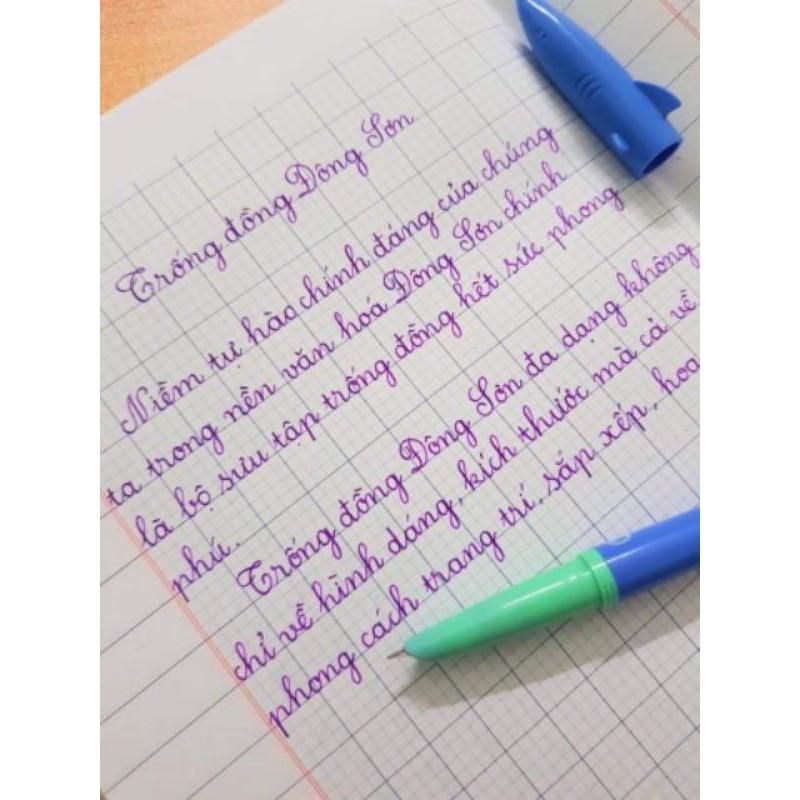 Trống đồng Đông Sơn
Niềm tự hào chính đáng của chúng
ta trong nền văn hoá Đông Sơn chính
là bộ sưu tập trống đồng hết sức phong
phú.
Trống đồng Đông Sơn đa dạng không
chỉ về hình dáng, kích thước mà cả về
phong cách trang trí, sắp xếp, hoa